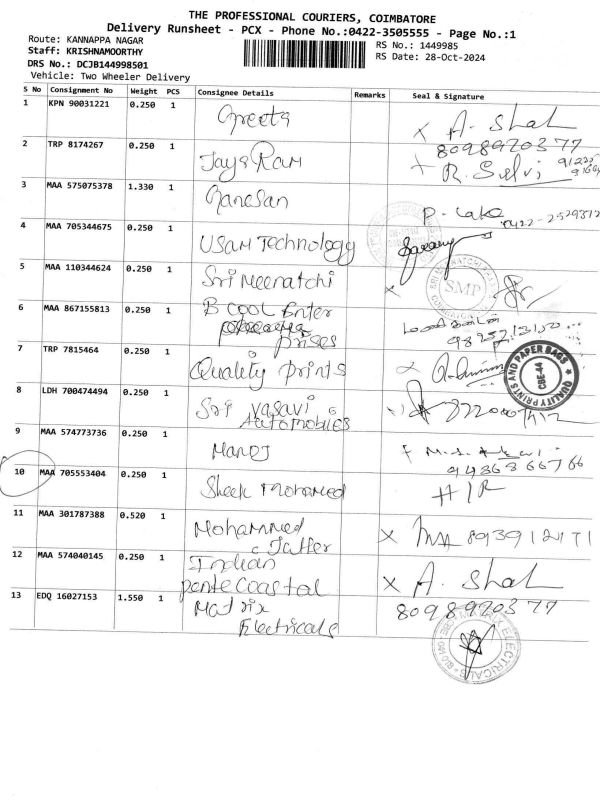 THE PROFESSIONAL COURIERS, COIMBATORE
Delivery Runsheet - PCX - Phone No.:0422-3505555 - Page No.:1
Route: KANNAPPA NAGAR
RS No.: 1449985
Staff: KRISHNAMOORTHY
RS Date: 28-Oct-2024
DRS No.: DCJB144998501
Vehicle: Two Wheeler Delivery
S No Consignment No Weight PCS Consignee Details Remarks Seal & Signature
1 KPN 90031221 0.250 1 Greeta X A. Shal
8098920377
2 TRP 8174267 0.250 1 Jaya Ram + R. Selvi
3 MAA 575075378 1.330 1 Ganesan
4 MAA 705344675 0.250 1 USAM Technology
5 MAA 110344624 0.250 1 Sri Meenatchi X SMP
6 MAA 867155813 0.250 1 B Cool Enter
prises
7 TRP 7815464 0.250 1 Quality Prints
QUALITY PRINTS AND PAPER BAGS CBE-44
8 LDH 700474494 0.250 1 Sri Vasavi
Automobiles
9 MAA 574773736 0.250 1 Manoj
9486366766
10 MAA 705553404 0.250 1 Sheek Mohamed H/R
11 MAA 301787388 0.520 1 Mohammed
Jaffer X
12 MAA 574040145 0.250 1 Indian
Pentecoastal X A. Shal
8098920377
13 EDQ 16027153 1.550 1 Matrix
Electricals